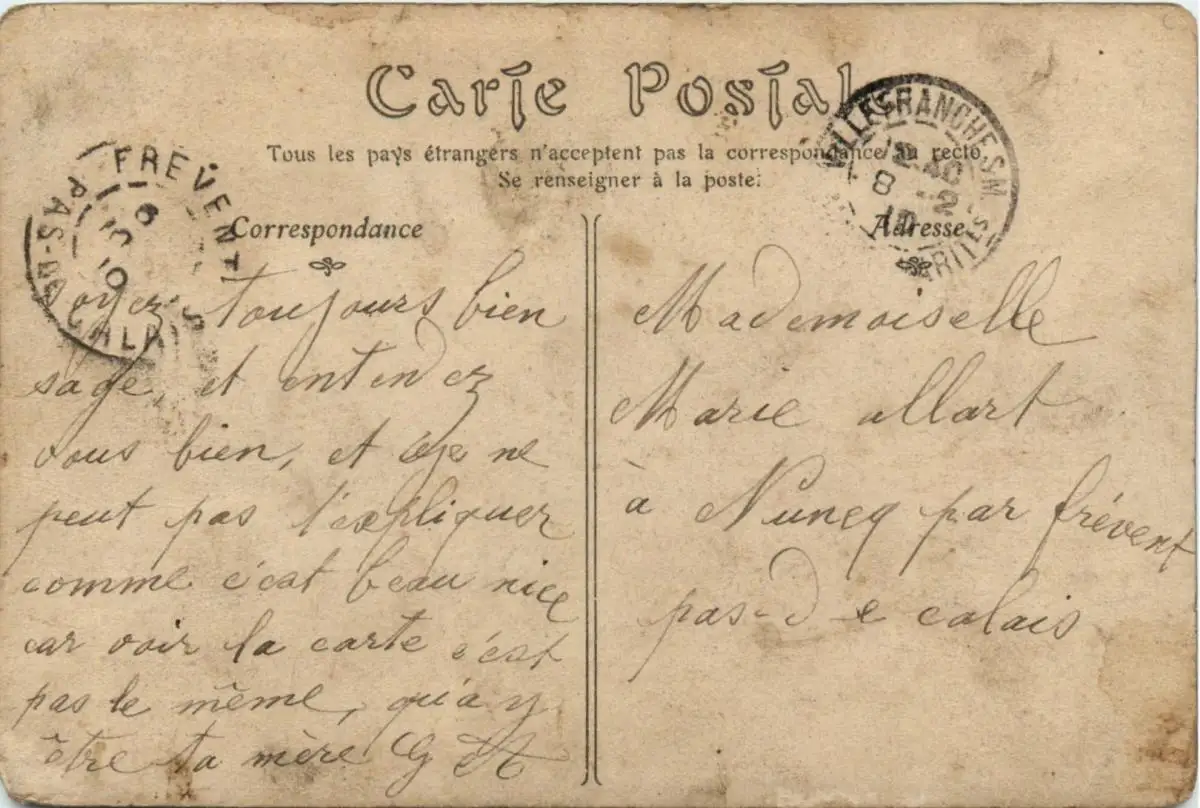 Carte Postale
Tous les pays étrangers n'acceptent pas la correspondance au recto.
Se renseigner à la poste.
Correspondance
Soyez toujours bien
sage, et entendez
vous bien, et je ne
peut pas t'expliquer
comme c'est beau nice
car voir la carte c'est
pas le même, qu'a y
être ta mère
Adresse
Mademoiselle
Marie allart
à Nuncq par frévent
pas-de calais
FREVENT
PAS-DE-CALAIS
VILLEFRANCHE-S-M.
8 -2
10